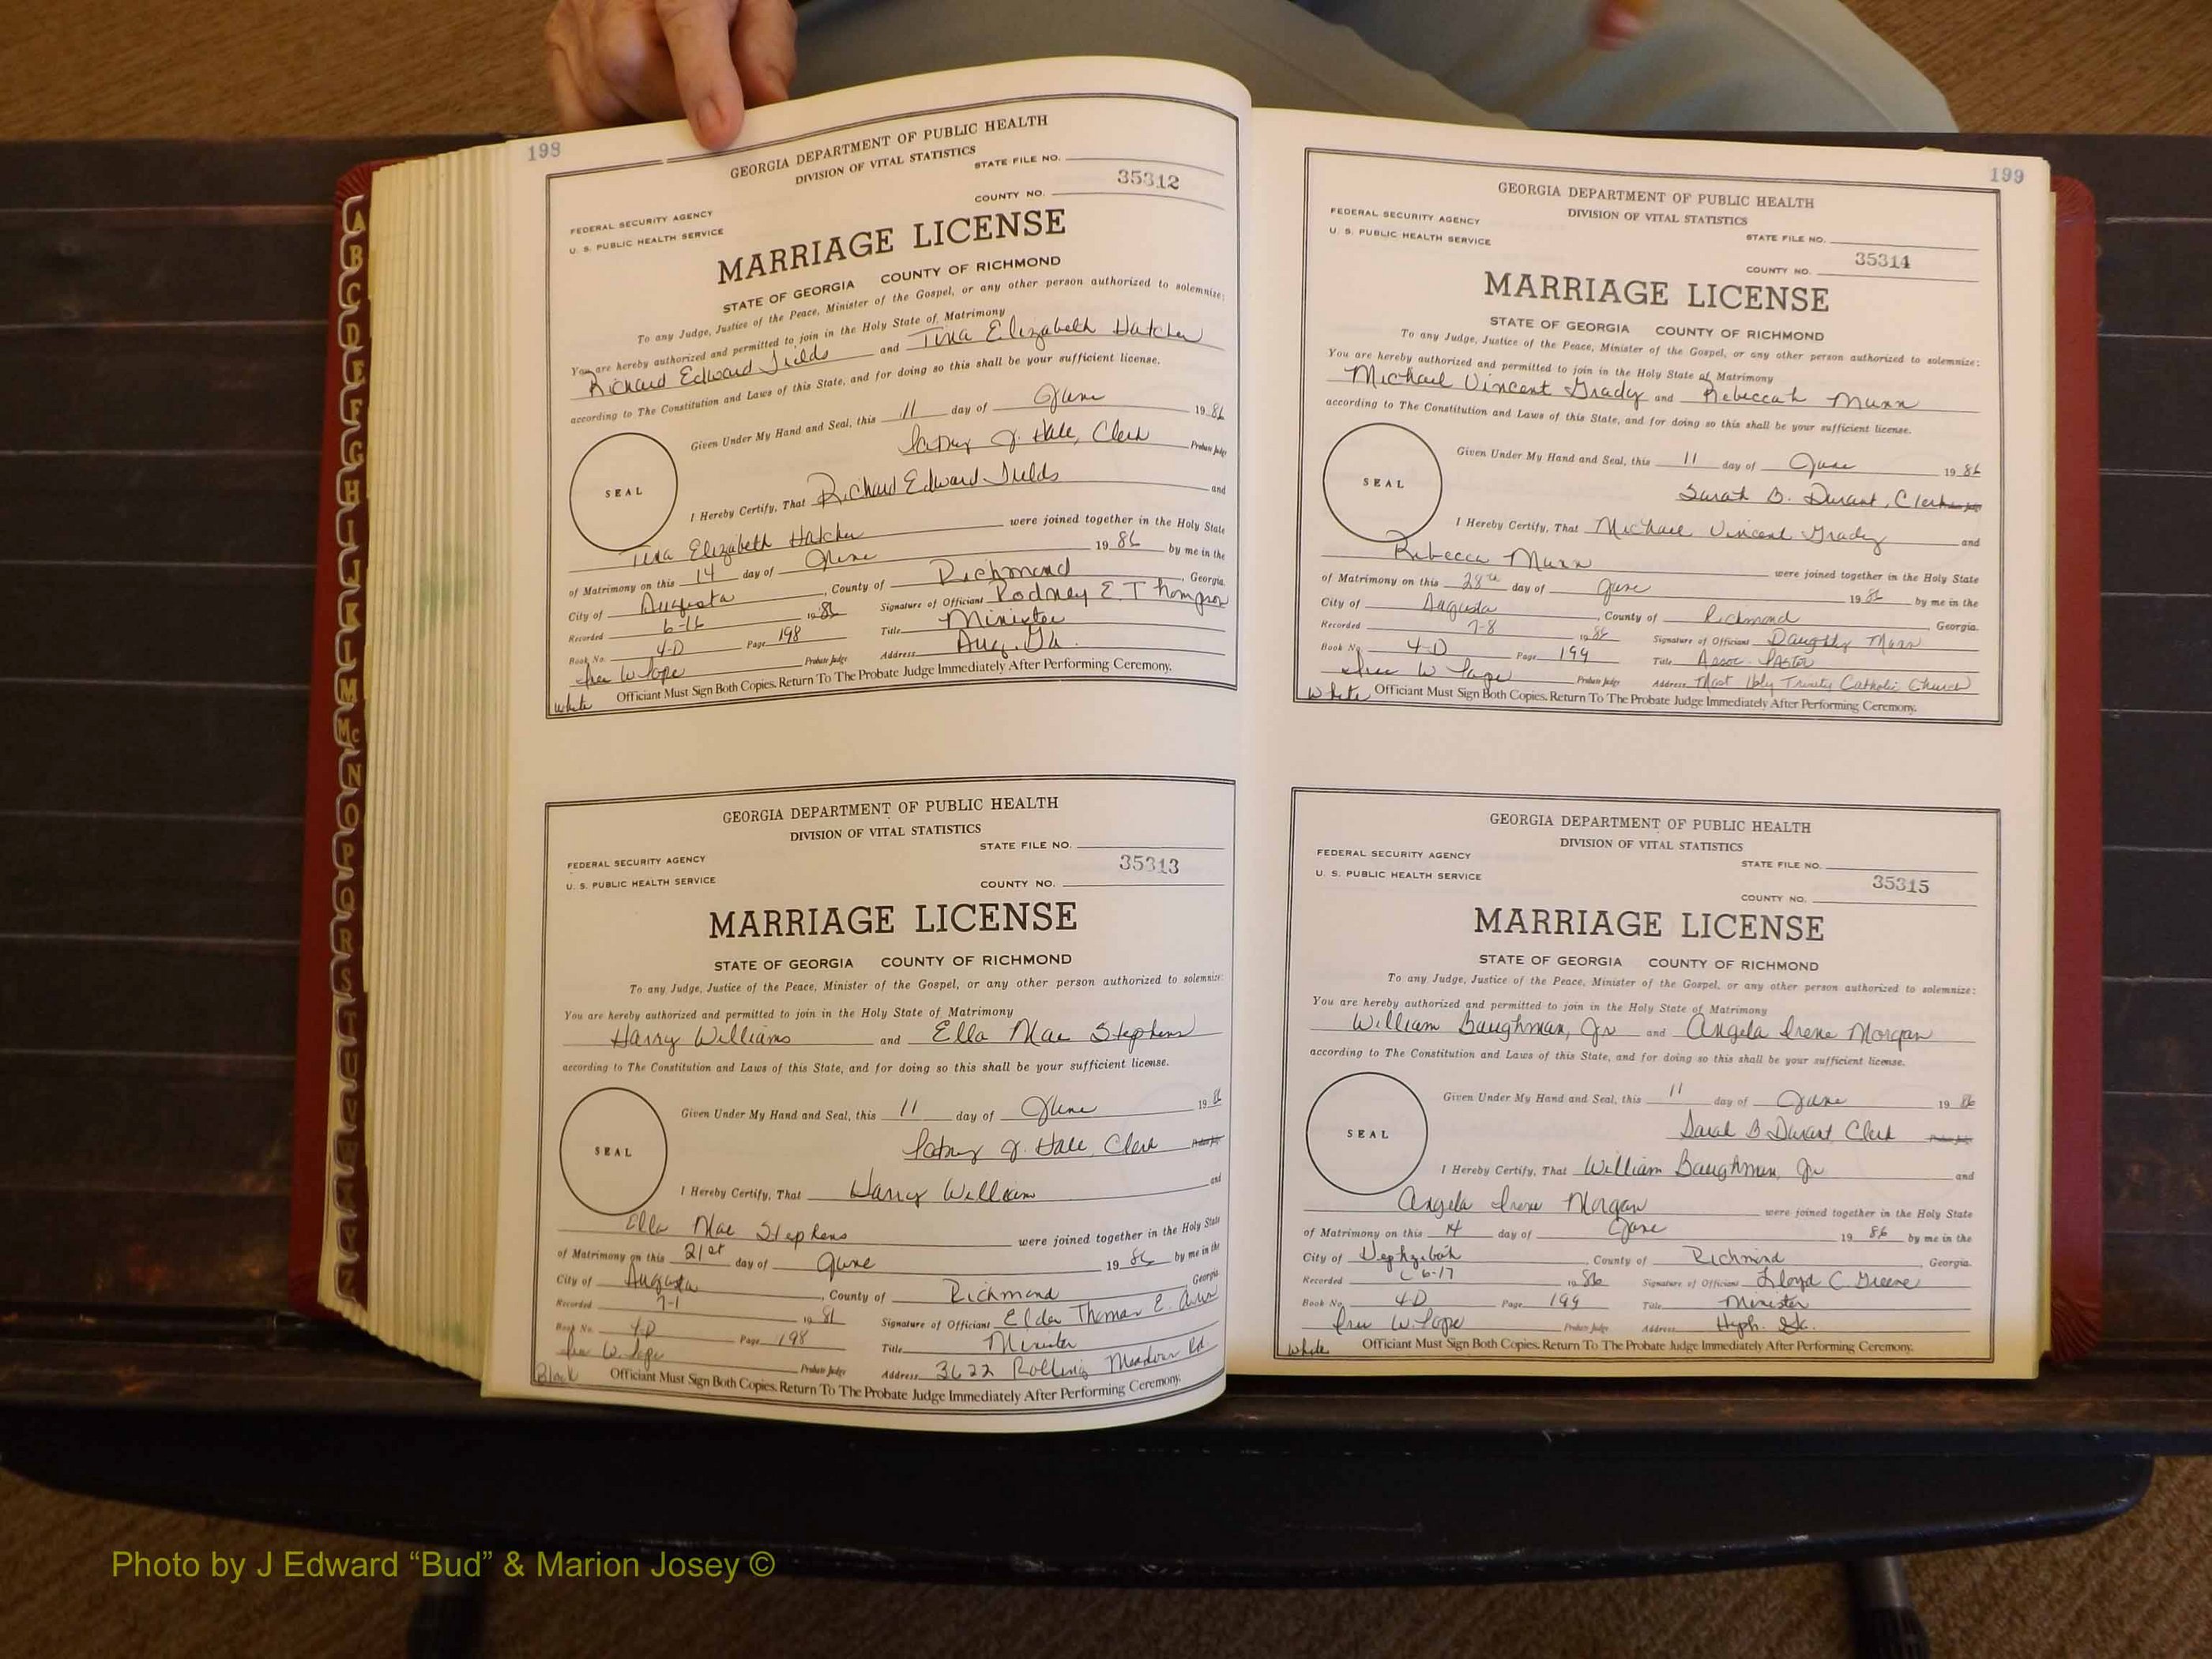 198
GEORGIA DEPARTMENT OF PUBLIC HEALTH
DIVISION OF VITAL STATISTICS
STATE FILE NO.
35312
COUNTY NO.
FEDERAL SECURITY AGENCY
U. S. PUBLIC HEALTH SERVICE
MARRIAGE LICENSE
STATE OF GEORGIA COUNTY OF RICHMOND
To any Judge, Justice of the Peace, Minister of the Gospel, or any other person authorized to solemnize:
You are hereby authorized and permitted to join in the Holy State of Matrimony
Richard Edward Fields and Tina Elizabeth Hatcher
according to The Constitution and Laws of this State, and for doing so this shall be your sufficient license.
Given Under My Hand and Seal, this 11 day of June 1986
J. Hale, Clerk Probate Judge
SEAL
I Hereby Certify, That Richard Edward Fields and
Tina Elizabeth Hatcher were joined together in the Holy State
of Matrimony on this 14 day of June 1986 by me in the
City of Augusta, County of Richmond, Georgia.
Recorded 6-16 1986 Signature of Officiant Rodney E. Thompson
Book No. 4-D Page 198 Title Minister
W. Pope Probate Judge Address Aug. Ga.
White Officiant Must Sign Both Copies. Return To The Probate Judge Immediately After Performing Ceremony.
GEORGIA DEPARTMENT OF PUBLIC HEALTH
DIVISION OF VITAL STATISTICS
STATE FILE NO.
35313
FEDERAL SECURITY AGENCY
U. S. PUBLIC HEALTH SERVICE
COUNTY NO.
MARRIAGE LICENSE
STATE OF GEORGIA COUNTY OF RICHMOND
To any Judge, Justice of the Peace, Minister of the Gospel, or any other person authorized to solemnize:
You are hereby authorized and permitted to join in the Holy State of Matrimony
Harry Williams and Ella Mae Stephens
according to The Constitution and Laws of this State, and for doing so this shall be your sufficient license.
Given Under My Hand and Seal, this 11 day of June 1986
J. Hale, Clerk Probate Judge
SEAL
I Hereby Certify, That Harry William and
Ella Mae Stephens were joined together in the Holy State
of Matrimony on this 21st day of June 1986 by me in the
City of Augusta, County of Richmond, Georgia
Recorded 7-1 1986 Signature of Officiant Elder Thomas E.
Book No. 4-D Page 198 Title Minister
W. Pope Probate Judge Address 3622 Rolling Meadows Rd
Black Officiant Must Sign Both Copies. Return To The Probate Judge Immediately After Performing Ceremony.
199
GEORGIA DEPARTMENT OF PUBLIC HEALTH
DIVISION OF VITAL STATISTICS
FEDERAL SECURITY AGENCY
U. S. PUBLIC HEALTH SERVICE
STATE FILE NO.
35314
COUNTY NO.
MARRIAGE LICENSE
STATE OF GEORGIA COUNTY OF RICHMOND
To any Judge, Justice of the Peace, Minister of the Gospel, or any other person authorized to solemnize:
You are hereby authorized and permitted to join in the Holy State of Matrimony
Michael Vincent Grady and Rebeccah Munn
according to The Constitution and Laws of this State, and for doing so this shall be your sufficient license.
Given Under My Hand and Seal, this 11 day of June 1986
Sarah B. Durant, Clerk
SEAL
I Hereby Certify, That Michael Vincent Grady and
Rebecca Munn were joined together in the Holy State
of Matrimony on this 28th day of June 1986 by me in the
City of Augusta, County of Richmond Georgia.
Recorded 7-8 1986 Signature of Officiant Munn
Book No. 4-D Page 199 Title Assoc. Pastor
W Pope Probate Judge Address Most Holy Trinity Catholic Church
White Officiant Must Sign Both Copies. Return To The Probate Judge Immediately After Performing Ceremony.
GEORGIA DEPARTMENT OF PUBLIC HEALTH
DIVISION OF VITAL STATISTICS
FEDERAL SECURITY AGENCY
U. S. PUBLIC HEALTH SERVICE
STATE FILE NO.
35315
COUNTY NO.
MARRIAGE LICENSE
STATE OF GEORGIA COUNTY OF RICHMOND
To any Judge, Justice of the Peace, Minister of the Gospel, or any other person authorized to solemnize:
You are hereby authorized and permitted to join in the Holy State of Matrimony
William Baughman, Jr and Angela Irene Morgan
according to The Constitution and Laws of this State, and for doing so this shall be your sufficient license.
Given Under My Hand and Seal, this 11 day of June 1986
Sarah B Durant Clerk Probate Judge
SEAL
I Hereby Certify, That William Baughman, Jr and
Angela Irene Morgan were joined together in the Holy State
of Matrimony on this 14 day of June 1986 by me in the
City of Hephzibah, County of Richmond, Georgia.
Recorded 6-17 1986 Signature of Officiant Lloyd C. Greene
Book No. 4-D Page 199 Title Minister
W. Pope Probate Judge Address Heph. Ga.
White Officiant Must Sign Both Copies. Return To The Probate Judge Immediately After Performing Ceremony.
A
B
C
D
E
F
G
H
I
J
K
L
M
Mc
N
O
P
Q
R
S
T
U
V
W
X
Y
Z
Photo by J Edward “Bud” & Marion Josey ©